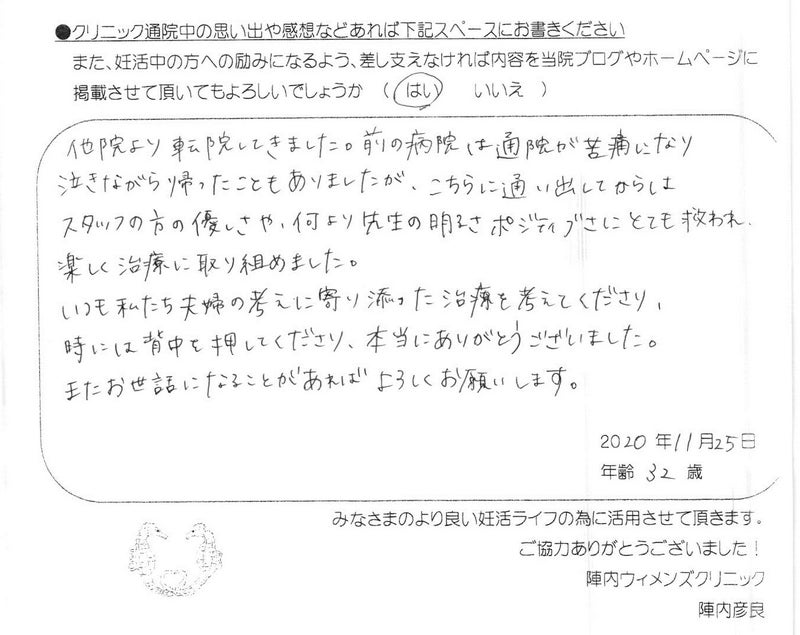 ●クリニック通院中の思い出や感想などあれば下記スペースにお書きください
また、妊活中の方への励みになるよう、差し支えなければ内容を当院ブログやホームページに
掲載させて頂いてもよろしいでしょうか （ はい いいえ ）
他院より転院してきました。前の病院は通院が苦痛になり
泣きながら帰ったこともありましたが、こちらに通い出してからは
スタッフの方の優しさや、何より先生の明るさ ポジティブさにとても救われ、
楽しく治療に取り組めました。
いつも私たち夫婦の考えに寄り添った治療を考えてくださり、
時には背中を押してくださり、本当にありがとうございました。
またお世話になることがあれば よろしくお願いします。
2020 年 11月25日
年齢 32 歳
みなさまのより良い妊活ライフの為に活用させて頂きます。
ご協力ありがとうございました！
陣内ウィメンズクリニック
陣内彦良